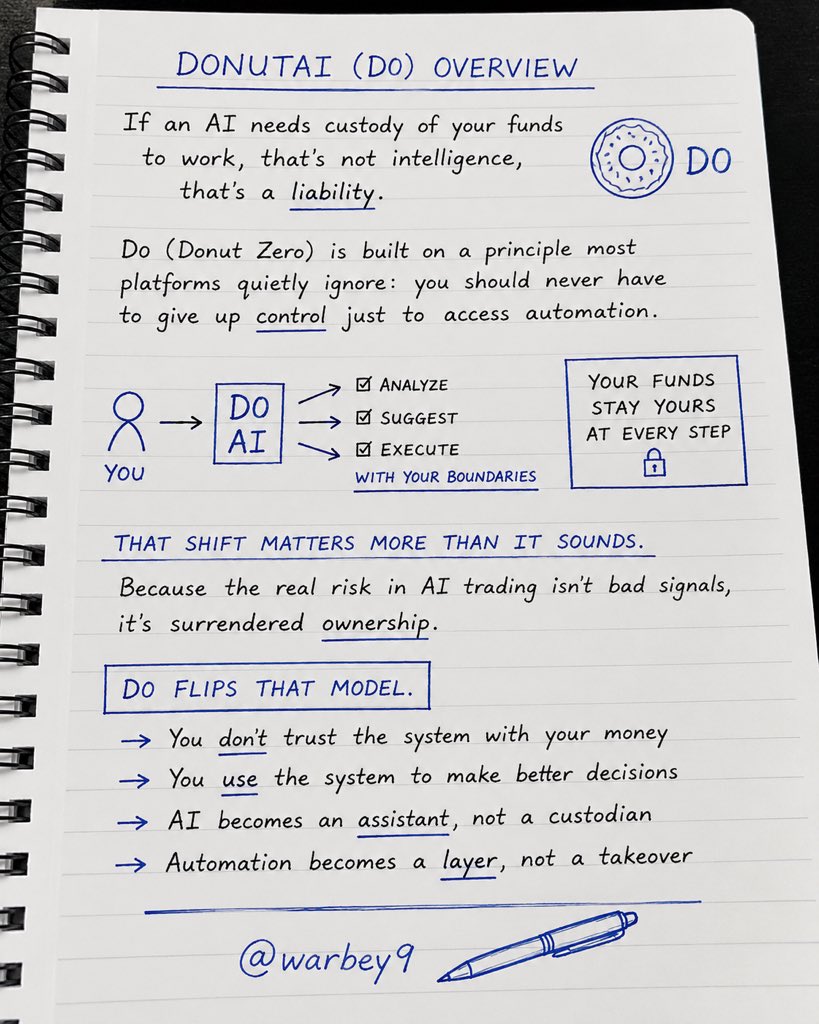 DONUTAI (DO) OVERVIEW
If an AI needs custody of your funds
to work, that's not intelligence,
that's a liability.
DO
Do (Donut Zero) is built on a principle most
platforms quietly ignore: you should never have
to give up control just to access automation.
YOU
DO
AI
ANALYZE
SUGGEST
EXECUTE
WITH YOUR BOUNDARIES
YOUR FUNDS
STAY YOURS
AT EVERY STEP
THAT SHIFT MATTERS MORE THAN IT SOUNDS.
Because the real risk in AI trading isn't bad signals,
it's surrendered ownership.
DO FLIPS THAT MODEL.
→ You don't trust the system with your money
→ You use the system to make better decisions
→ AI becomes an assistant, not a custodian
→ Automation becomes a layer, not a takeover
@warbey9